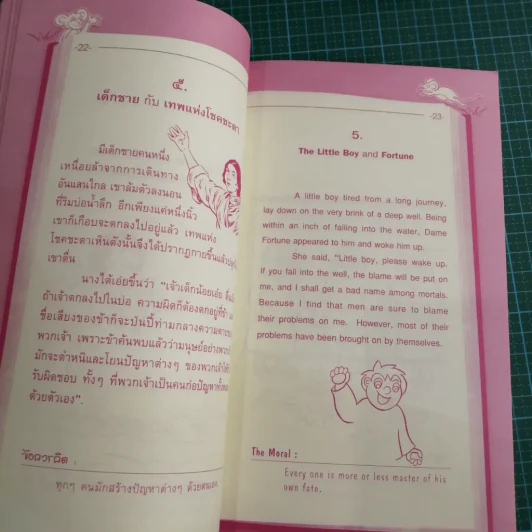 -22-
๕.
เด็กชาย กับ เทพแห่งโชคชะตา
มีเด็กชายคนหนึ่ง
เหนื่อยล้าจากการเดินทาง
อันแสนไกล เขาล้มตัวลงนอน
ที่ริมบ่อน้ำลึก อีกเพียงแค่หนึ่งนิ้ว
เขาก็เกือบจะตกลงไปอยู่แล้ว เทพแห่ง
โชคชะตาเห็นดังนั้นจึงได้ปรากฏกายขึ้นแล้วปลุก
เขาตื่น
นางได้เอ่ยขึ้นว่า "เจ้าเด็กน้อยเอ๋ย
ถ้าเจ้าตกลงไปในบ่อ ความผิดก็ต้องตกอยู่ที่ข้า
ชื่อเสียงของข้าก็จะป่นปี้ท่ามกลาง
พวกเจ้า เพราะข้าค้นพบแล้วว่ามนุษย์อย่าง
มักจะตำหนิและโยนปัญหาต่างๆ ของพวกเจ้า
รับผิดชอบ ทั้งๆ ที่พวกเจ้าเป็นคนก่อปัญหา
ด้วยตัวเอง".
ข้อควรคิด :
ทุกๆ คนมักสร้างปัญหาต่างๆ ด้วยตนเอง
-23-
5.
The Little Boy and Fortune
A little boy tired from a long journey,
lay down on the very brink of a deep well. Being
within an inch of falling into the water, Dame
Fortune appeared to him and woke him up.
She said, "Little boy, please wake up.
If you fall into the well, the blame will be put on
me, and I shall get a bad name among mortals.
Because I find that men are sure to blame
their problems on me. However, most of their
problems have been brought on by themselves.
The Moral :
Every one is more or less master of his
own fate.